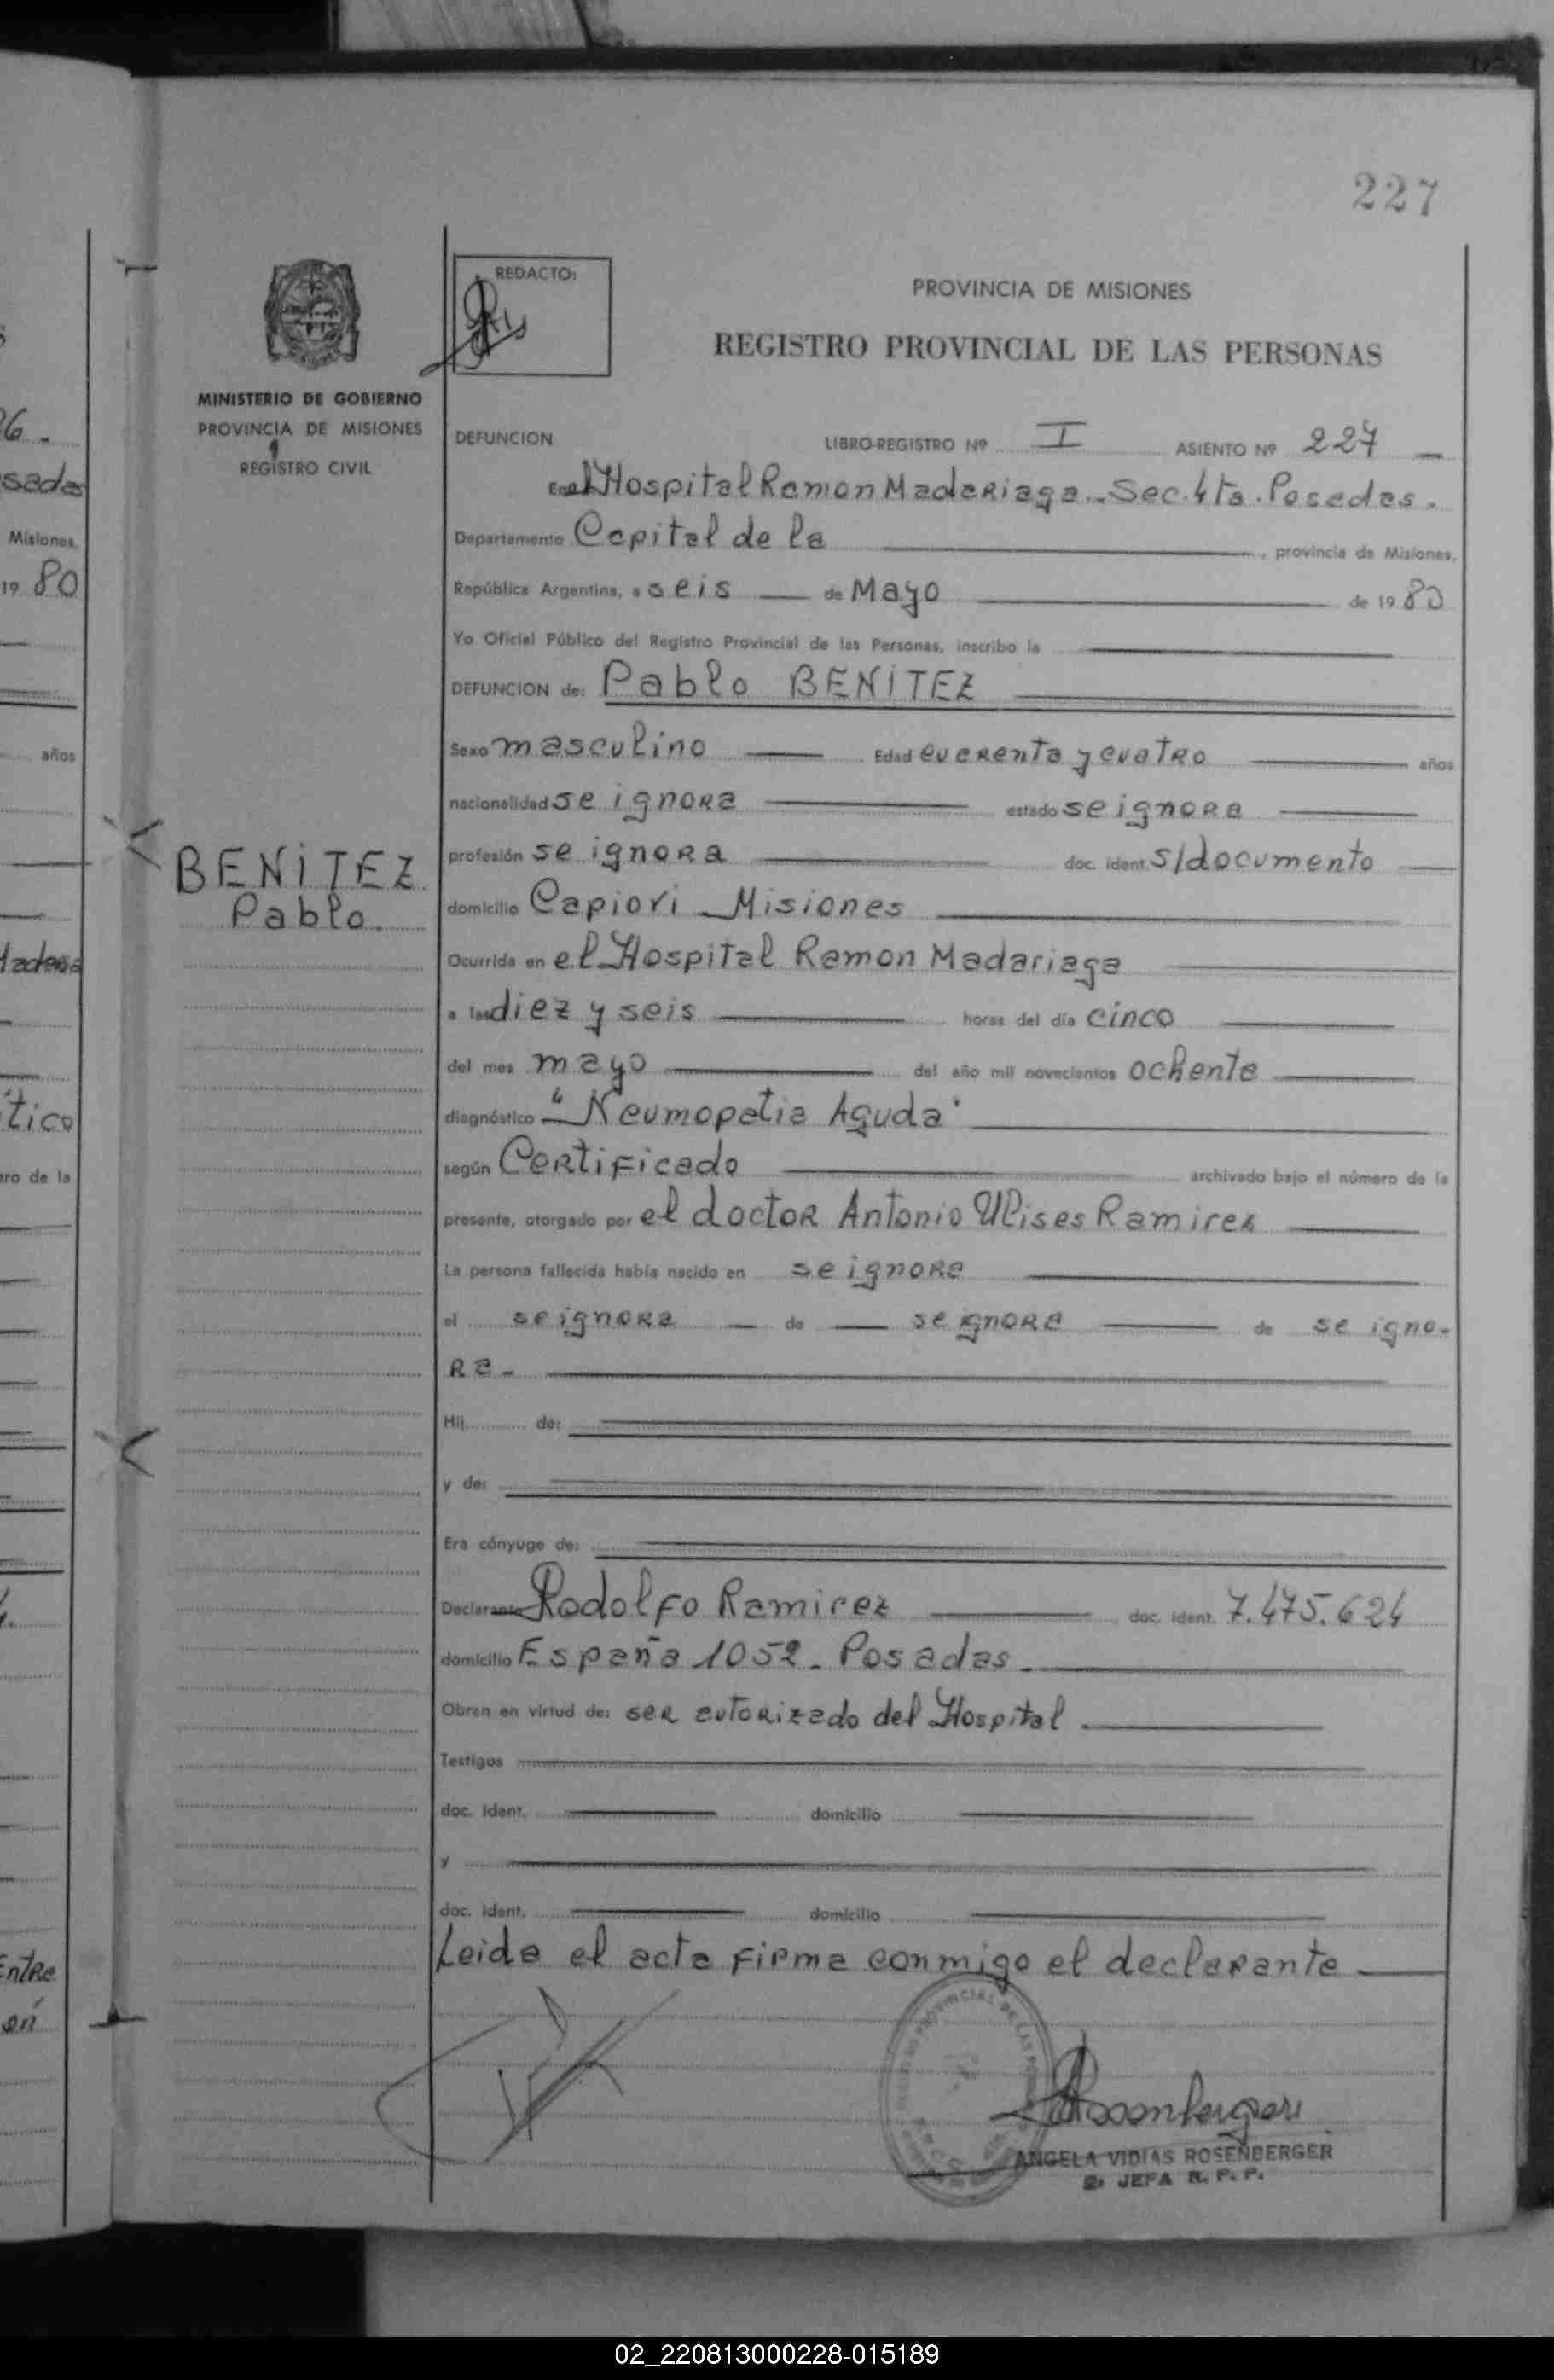 227
REDACTO:
PROVINCIA DE MISIONES
REGISTRO PROVINCIAL DE LAS PERSONAS
MINISTERIO DE GOBIERNO
PROVINCIA DE MISIONES
REGISTRO CIVIL
DEFUNCION LIBRO-REGISTRO Nº I ASIENTO Nº 227
En el Hospital Ramon Madariaga - Sec. 4ta. Posadas.
Departamento Capital de la , provincia de Misiones,
República Argentina, a seis de Mayo de 1980
Yo Oficial Público del Registro Provincial de las Personas, inscribo la
DEFUNCION de: Pablo BENITEZ
Sexo masculino Edad cuarenta y cuatro años
nacionalidad se ignora estado se ignora
profesión se ignora doc. ident. s/documento
BENITEZ
Pablo.
domicilio Capiovi - Misiones
Ocurrida en el Hospital Ramon Madariaga
a las diez y seis horas del día cinco
del mes mayo del año mil novecientos ochenta
diagnóstico "Neumopatia Aguda"
según Certificado archivado bajo el número de la
presente, otorgado por el doctor Antonio Ulises Ramirez
La persona fallecida había nacido en se ignora
el se ignora de se ignora de se igno-
ra -
Hij de:
y de:
Era cónyuge de:
Declarante Rodolfo Ramirez doc. ident. 7.475.624
domicilio España 1052 - Posadas -
Obran en virtud de: ser autorizado del Hospital.
Testigos
doc. ident. domicilio
y
doc. ident. domicilio
Leida el acta firma conmigo el declarante
ANGELA VIDIAS ROSENBERGER
JEFA R. P. P.
6.
sadas
Misiones
19 80
años
tico
ro de la
Entre
02_220813000228-015189